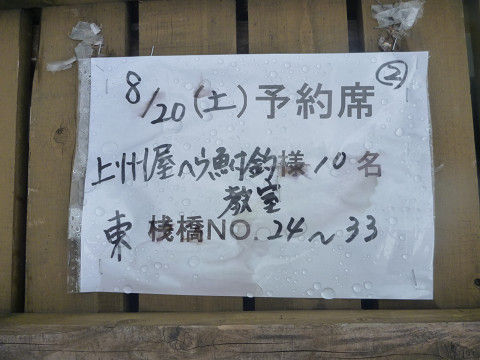 ②
8/20(土)予約席
上州屋へら鮒釣様10名
教室
東 桟橋NO.24～33